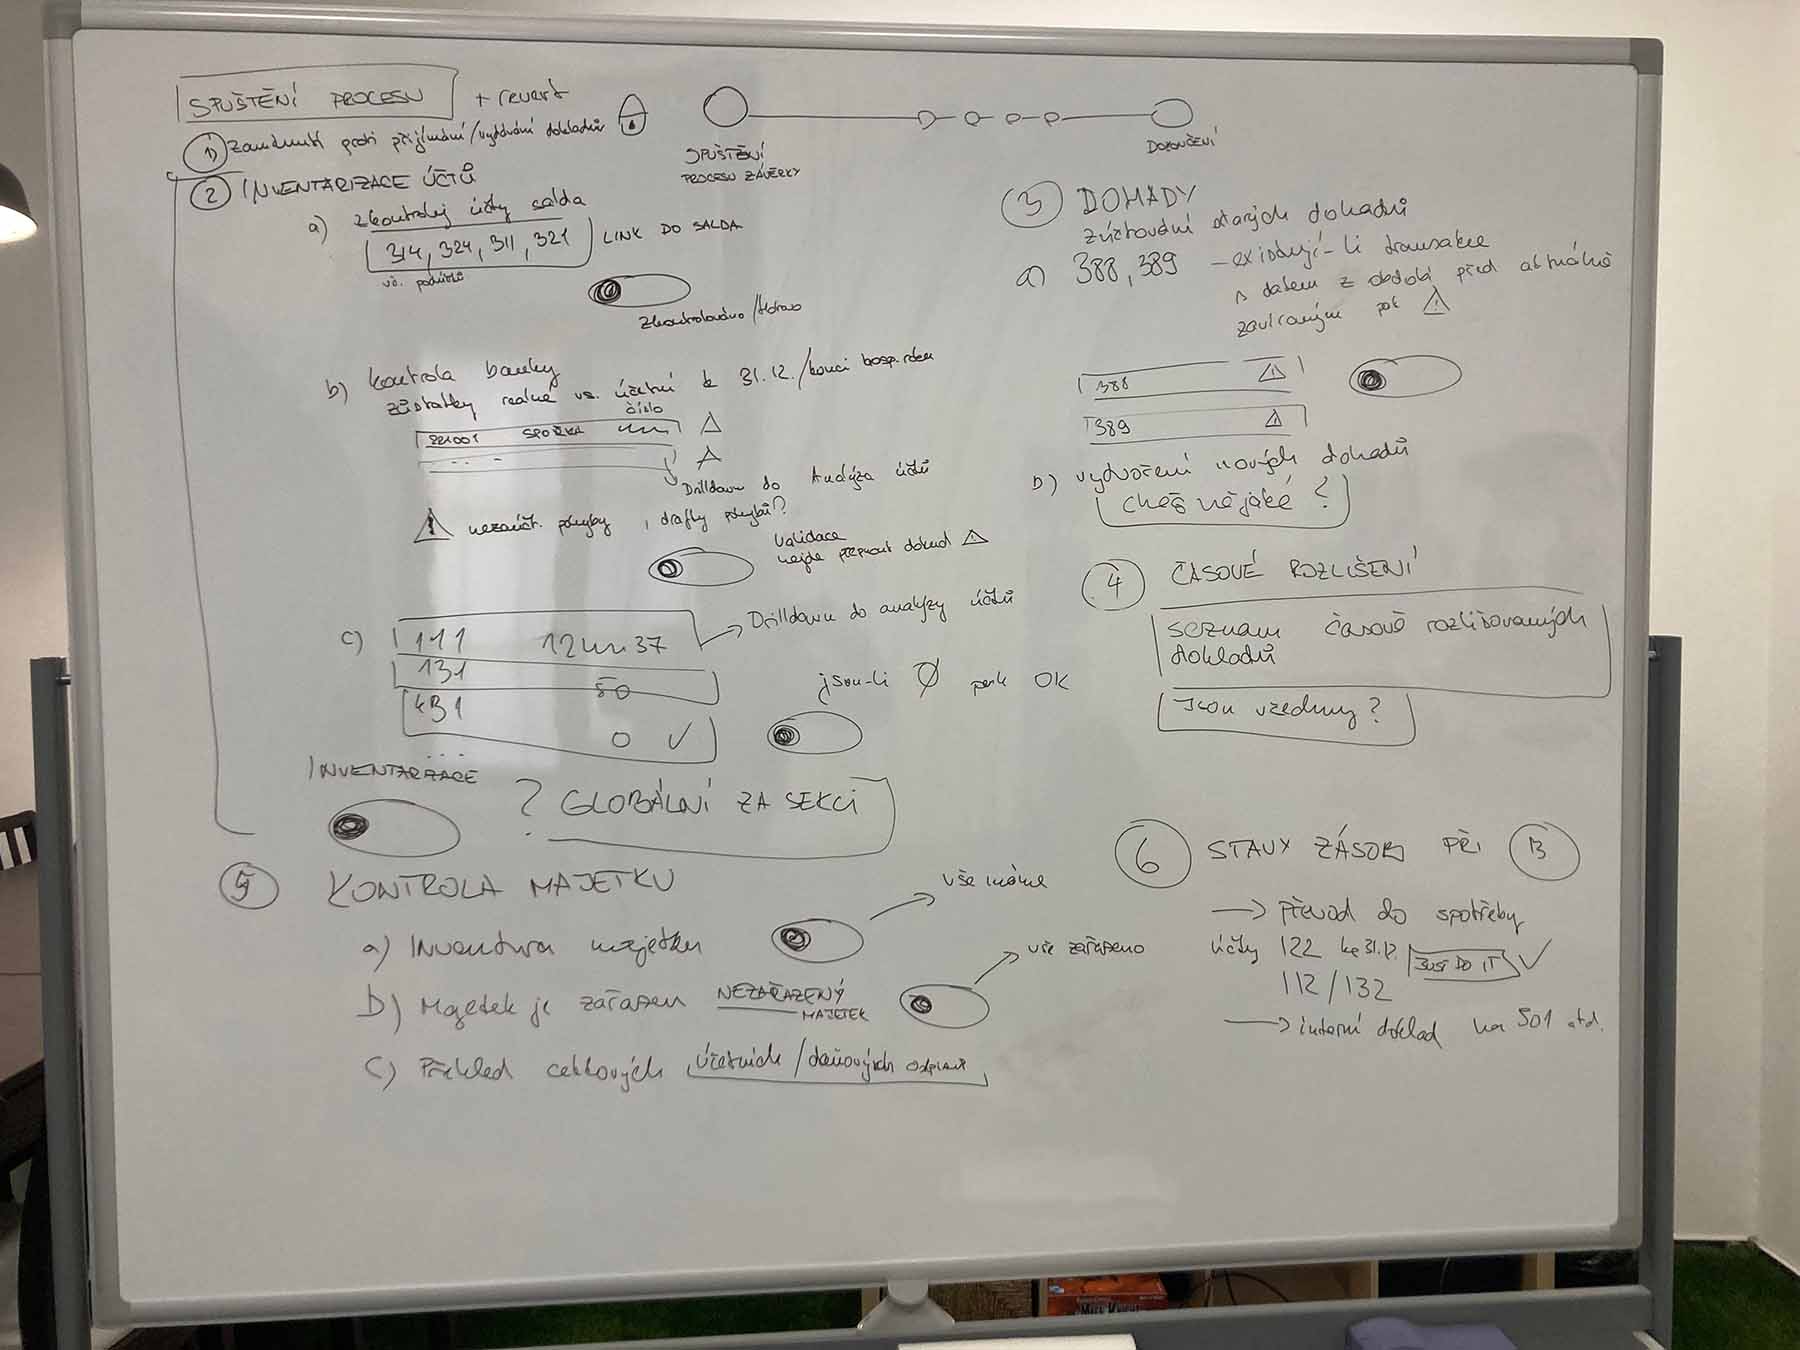 SPUŠTĚNÍ PROCESU + revert
1) Zamknutí proti přijímání/vydávání dokladů
SPUŠTĚNÍ
PROCESU ZÁVĚRKY
DOKONČENÍ
2 INVENTARIZACE ÚČTŮ
a) zkontroluj účty salda
314, 324, 311, 321 LINK DO SALDA
vč. podúčtů
Zkontrolováno / Hotovo
b) kontrola banky
zůstatky reálné vs. účetní k 31.12. / konci hosp. roku
číslo
221001 SPOŘKA
Drilldown do Analýza účtů
nezaúčt. pohyby, drafty pohybů?
Validace
nejde přepnout dokud
c) 111 12 37
Drilldown do analýzy účtů
131 50
431
0 ✓
jsou-li Ø pak OK
INVENTARIZACE
? GLOBÁLNÍ ZA SEKCI
3 DOHADY
zúčtování starých dohadů
a) 388, 389 – existují-li transakce
s datem z období před aktuálně
zavíraným pak
388
389
b) vytvoření nových dohadů
chceš nějaké?
4 ČASOVÉ ROZLIŠENÍ
seznam časově rozlišovaných
dokladů
Jsou všechny?
5 KONTROLA MAJETKU
a) Inventura majetku
vše máme
b) Majetek je zařazen NEZAŘAZENÝ
MAJETEK
vše zařazeno
c) Přehled celkových účetních / daňových odpisů
6 STAVY ZÁSOB PŘI B
→ převod do spotřeby
účty 122 ke 31.12. JUST DO IT ✓
112 / 132
→ interní doklad na 501 atd.